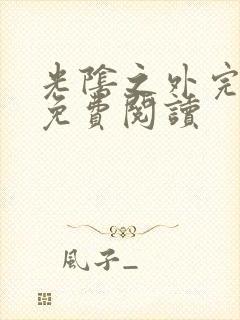 光陰之外完
免費閱讀
風子_